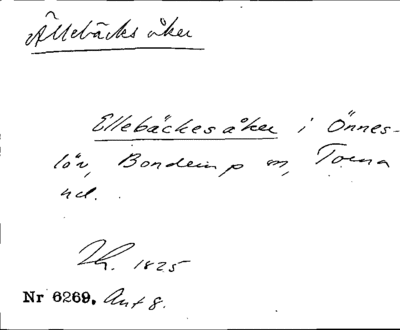 Ällebäcks åker
Ellebäckes åker i Önnes-
löv, Bonderup m, Torna
hd.
Th. 1825
Nr 6269. Ant 8.